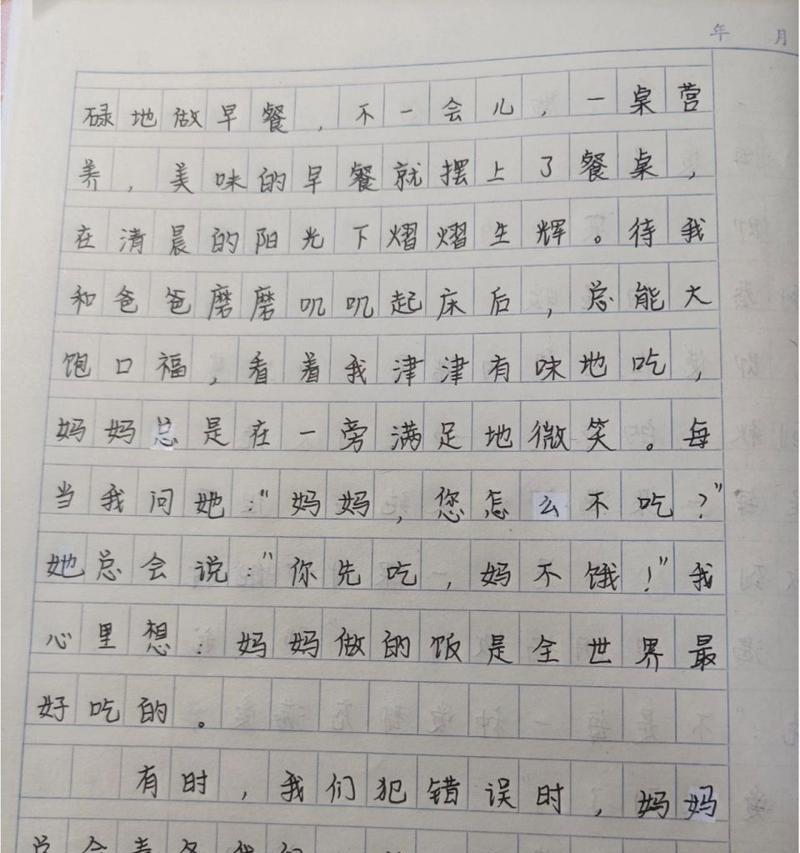 年 月
碌地做早餐，不一会儿，一桌营
养，美味的早餐就摆上了餐桌，
在清晨的阳光下熠熠生辉。待我
和爸爸磨磨叽叽起床后，总能大
饱口福，看着我津津有味地吃，
妈妈总是在一旁满足地微笑。每
当我问她：“妈妈，您怎么不吃？”
她总会说：“你先吃，妈不饿！”我
心里想：妈妈做的饭是全世界最
好吃的。
有时，我们犯错误时，妈妈
总会责备我们